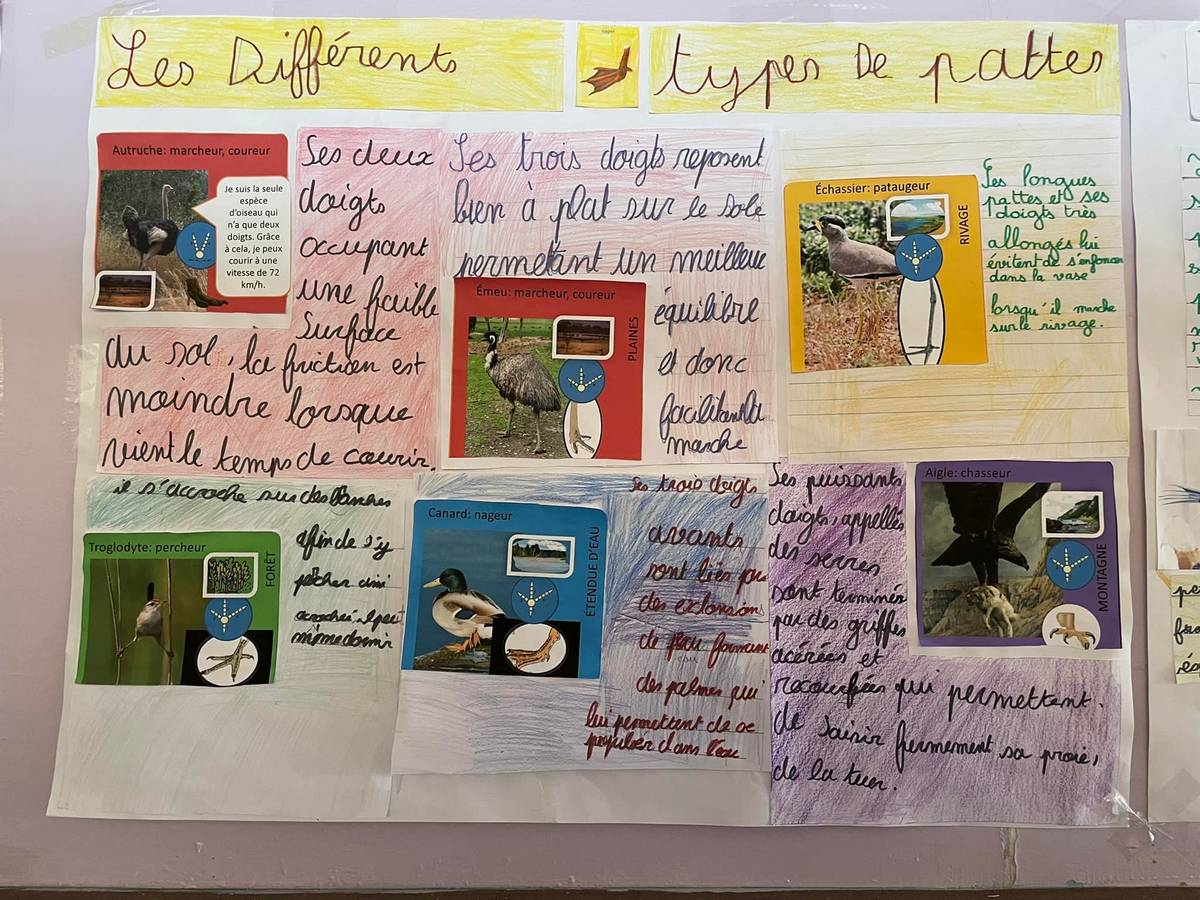 Les Différents
types De pattes
Autruche: marcheur, coureur
Je suis la seule
espèce
d'oiseau qui
n'a que deux
doigts. Grâce
à cela, je peux
courir à une
vitesse de 72
km/h.
Ses deux
doigts
occupant
une faible
Surface
du sol, la friction est
moindre lorsque
vient le temps de courir.
Ses trois doigts reposent
bien à plat sur le sole
permetant un meilleur
équilibre
et donc
marche
Émeu: marcheur, coureur
PLAINES
Échassier: pataugeur
RIVAGE
Ses longues
pattes et ses
doigts très
allongés lui
évitent de s'enfoncer
dans la vase
lorsqu'il marche
sur le rivage.
il s'accroche sur des branches
afin de s'y
accroché il peut
même dormir
Troglodyte: percheur
FORÊT
Canard: nageur
ÉTENDUE D'EAU
Ses trois doigts
avants
sont liés par
des extensions
de peau formant
des palmes qui
lui permettent de se
propulser dans l'eau
Ses puissants
doigts, appellés
des serres
sont terminés
par des griffes
acérées et
recourbées qui permettent
de saisir fermement sa proie,
de la tuer.
Aigle: chasseur
MONTAGNE